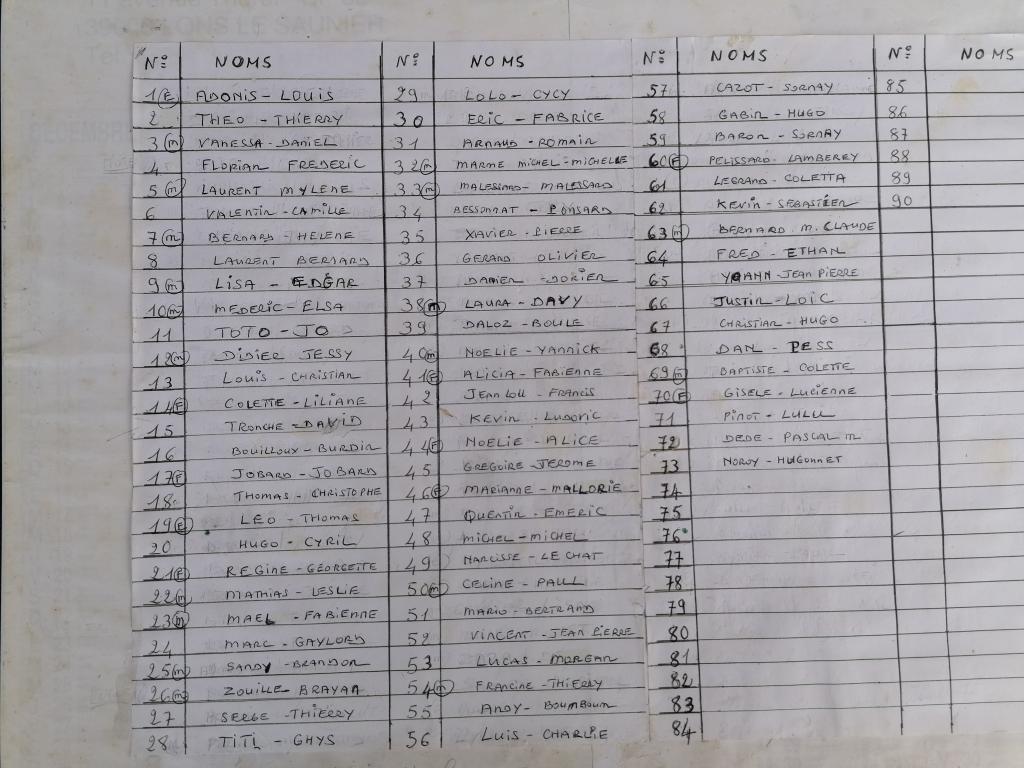 N° NOMS
1 (F) ADONIS - LOUIS
2 THEO - THIERRY
3 (m) VANESSA - DANIEL
4 FLORIAN FREDERIC
5 (m) LAURENT MYLENE
6 VALENTIN - CAMILLE
7 (m) BERNARD - HELENE
8 LAURENT BERNARD
9 (m) LISA - EDGAR
10 (m) MEDERIC - ELSA
11 TOTO - JO
12 (m) DIDIER JESSY
13 LOUIS - CHRISTIAN
14 (F) COLETTE - LILIANE
15 TRONCHE - DAVID
16 BOUILLOUX - BURDIN
17 (F) JOBARD - JOBARD
18 THOMAS - CHRISTOPHE
19 (F) LEO - THOMAS
20 HUGO - CYRIL
21 (F) REGINE - GEORGETTE
22 (m) MATHIAS - LESLIE
23 (m) MAEL - FABIENNE
24 MARC - GAYLORD
25 (m) SANDY - BRANDON
26 (m) ZOUILLE - BRAYAN
27 SERGE - THIERRY
28 TITI - GHYS
N° NOMS
29 LOLO - CYCY
30 ERIC - FABRICE
31 ARNAUD - ROMAIN
32 (m) MARME MICHEL - MICHELLE
33 (m) MALESSARD - MALESSARD
34 BESSONNAT - PONSARD
35 XAVIER - PIERRE
36 GERARD OLIVIER
37 DAMIEN - DORIER
38 (m) LAURA - DAVY
39 DALOZ - BOULE
40 (m) NOELIE - YANNICK
41 (F) ALICIA - FABIENNE
42 JEAN LOU - FRANCIS
43 KEVIN - LUDOVIC
44 (F) NOELIE - ALICE
45 GREGOIRE - JEROME
46 (F) MARIANNE - MALLORIE
47 QUENTIN - EMERIC
48 MICHEL - MICHEL
49 NARCISSE - LE CHAT
50 (m) CELINE - PAUL
51 MARIO - BERTRAND
52 VINCENT - JEAN PIERRE
53 LUCAS - MORGAN
54 (m) FRANCINE - THIERRY
55 ANDY - BOUMBOUM
56 LUIS - CHARLIE
N° NOMS
57 CAZOT - SORNAY
58 GABIN - HUGO
59 BARON - SORNAY
60 (F) PELISSARD - LAMBERRY
61 LEGRAND - COLETTA
62 KEVIN - SEBASTIEN
63 (m) BERNARD M. CLAUDE
64 FRED - ETHAN
65 YOAHN - JEAN PIERRE
66 JUSTIN - LOIC
67 CHRISTIAN - HUGO
68 DAN - PESS
69 (m) BAPTISTE - COLETTE
70 (F) GISELE - LUCIENNE
71 PINOT - LULU
72 DEDE - PASCAL M
73 NOROY - HUGONNET
74
75
76
77
78
79
80
81
82
83
84
N° NOMS
85
86
87
88
89
90